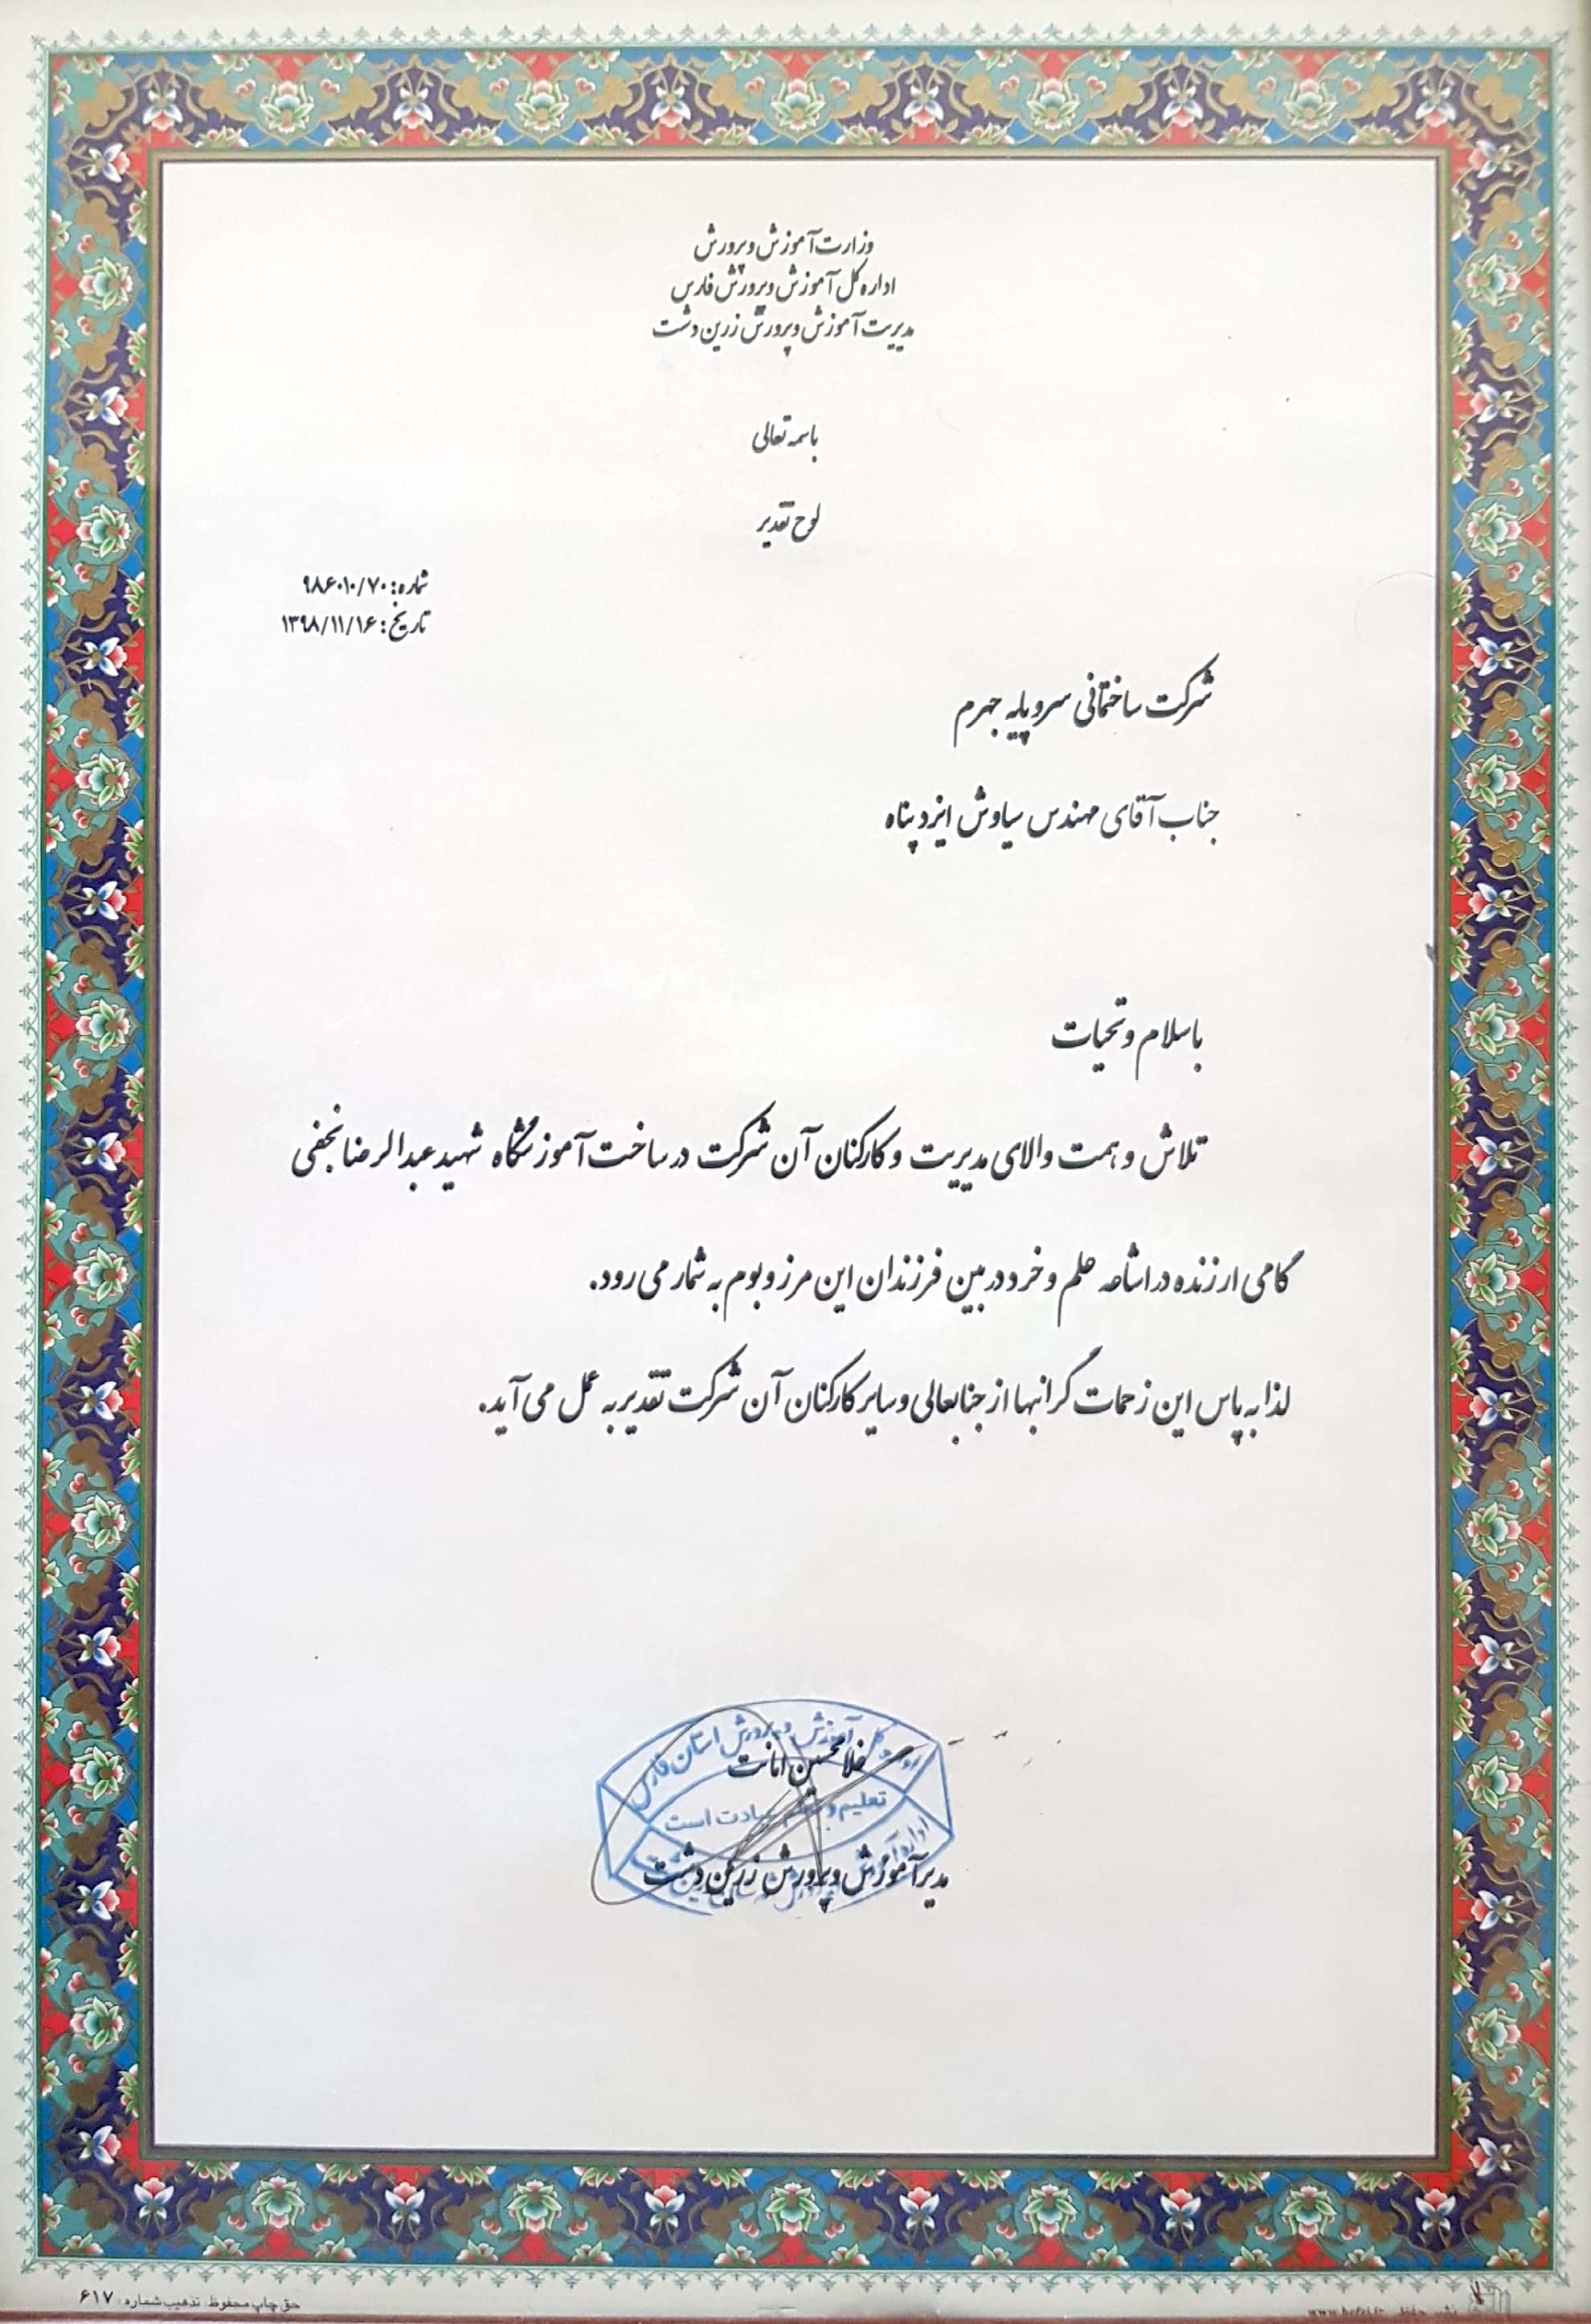 وزارت آموزش و پرورش
اداره کل آموزش و پرورش فارس
مدیریت آموزش و پرورش زرین دشت
باسمه تعالی
لوح تقدیر
شماره: ۹۸۶۰۱۰/۷۰
تاریخ: ۱۳۹۸/۱۱/۱۶
شرکت ساختمانی سروپایه جهرم
جناب آقای مهندس سیاوش ایزدپناه
باسلام و تحیات
تلاش و همت والای مدیریت و کارکنان آن شرکت در ساخت آموزشگاه شهید عبدالرضا نجفی
گامی ارزنده در اشاعه علم و خرد در بین فرزندان این مرز و بوم به شمار می رود.
لذا به پاس این زحمات گرانبها از جنابعالی و سایر کارکنان آن شرکت تقدیر به عمل می آید.
اداره کل آموزش و پرورش استان فارس
غلامحسین امانت
تعلیم و تعلم عبادت است
مدیر آموزش و پرورش زرین دشت
حق چاپ محفوظ تذهیب شماره: ۶۱۷